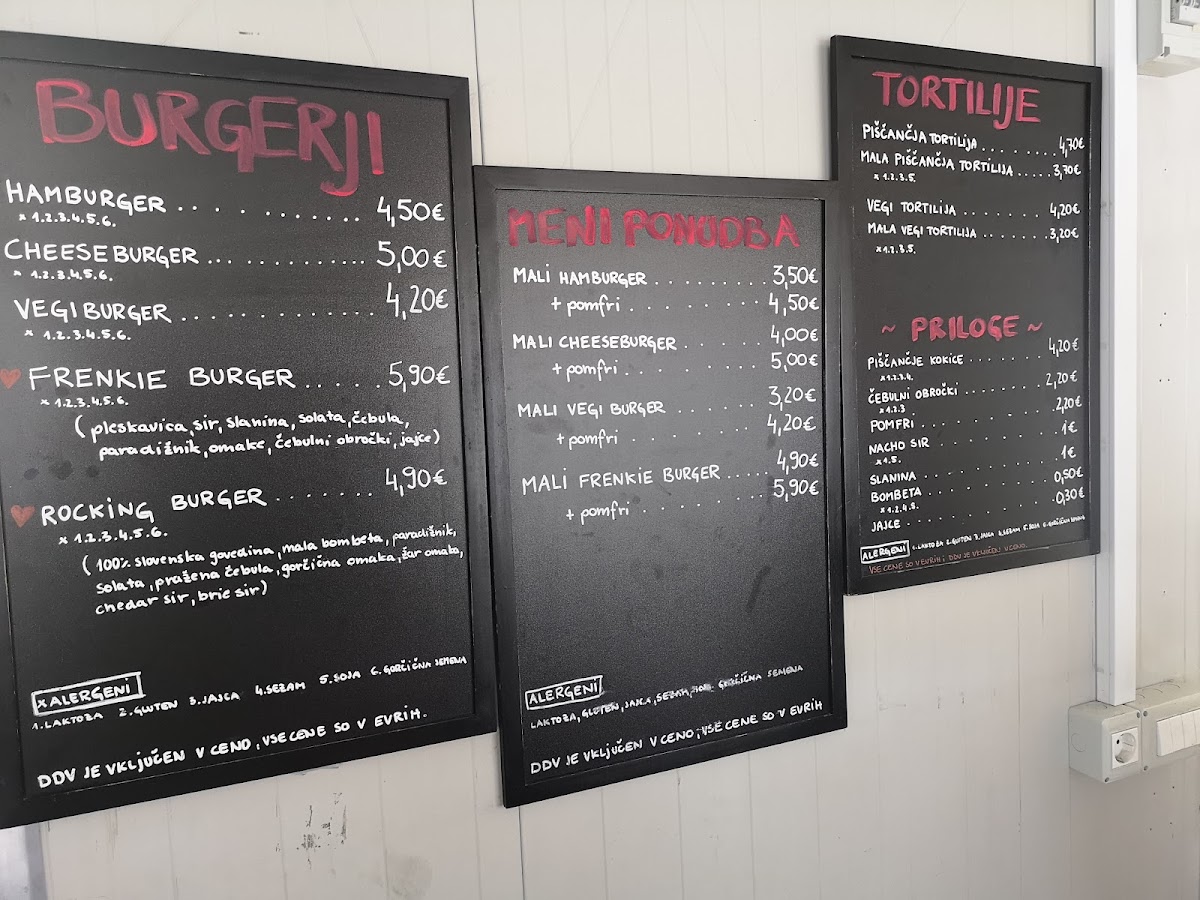 BURGERJI
HAMBURGER . . . . . . . . . . . . 4,50€
x 1.2.3.4.5.6.
CHEESEBURGER . . . . . . . . . . . . 5,00€
x 1.2.3.4.5.6.
VEGIBURGER . . . . . . . . . . . . 4,20€
x 1.2.3.4.5.6.
FRENKIE BURGER . . . . . 5,90€
x 1.2.3.4.5.6.
(pleskavica, sir, slanina, solata, čebula,
paradižnik, omake, čebulni obročki, jajce)
ROCKING BURGER . . . . . . . . 4,90€
x 1.2.3.4.5.6.
(100% slovenska govedina, mala bombeta, paradižnik,
solata, pražena čebula, gorčična omaka, žar omaka,
chedar sir, brie sir)
x ALERGENI
1.LAKTOZA 2.GLUTEN 3.JAJCA 4.SEZAM 5.SOJA 6.GORČIČNA SEMENA
DDV JE VKLJUČEN V CENO, VSE CENE SO V EVRIH.
MENI PONUDBA
MALI HAMBURGER . . . . . . . . . 3,50€
+ pomfri . . . . . . . . . 4,50€
MALI CHEESEBURGER . . . . . . . 4,00€
+ pomfri . . . . . . . . . 5,00€
MALI VEGI BURGER . . . . . . . 3,20€
+ pomfri . . . . . . . . . 4,20€
MALI FRENKIE BURGER . . . . . 4,90€
+ pomfri . . . . . 5,90€
ALERGENI
LAKTOZA, GLUTEN, JAJCA, SEZAM, GORČIČNA SEMENA
DDV JE VKLJUČEN V CENO, VSE CENE SO V EVRIH
TORTILIJE
PIŠČANČJA TORTILIJA . . . . . . . . 4,70€
MALA PIŠČANČJA TORTILIJA . . . . . 3,70€
x 1.2.3.5.
VEGI TORTILIJA . . . . . . . . . 4,20€
MALA VEGI TORTILIJA . . . . . . . 3,20€
x 1.2.3.5.
~ PRILOGE ~
PIŠČANČJE KOKICE . . . . . . . 4,20€
x 1.2.3.4.
ČEBULNI OBROČKI . . . . . . . 2,20€
x 1.2.3
POMFRI . . . . . . . . . . 2,20€
NACHO SIR . . . . . . . . . 1€
x 1.5.
SLANINA . . . . . . . . . . 1€
BOMBETA . . . . . . . . . . 0,50€
x 1.2.4.5.
JAJCE . . . . . . . . . . 0,30€
ALERGENI 1.LAKTOZA 2.GLUTEN 3.JAJCA 4.SEZAM 5.SOJA 6.GORČIČNA SEMENA
VSE CENE SO V EVRIH, DDV JE VKLJUČEN V CENO.